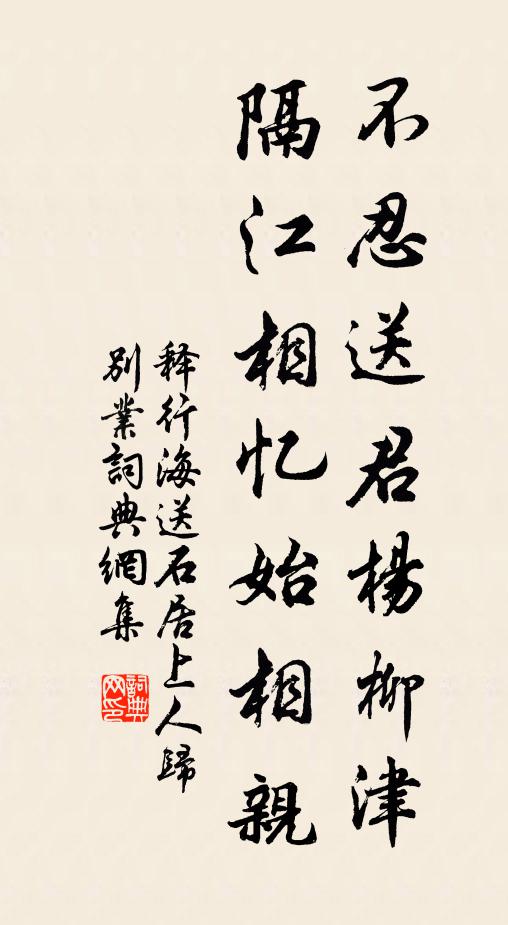 不忍送君楊柳津
隔江相忆始相親
释行海送石居上人歸
別業詞典網集
詞典
网印